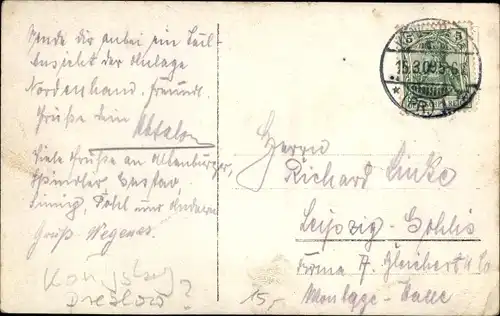 Sende dir anbei ein Teil-
Ansicht der Anlage
Nordenhamm. Freundl.
Grüße dein
Viele Grüße an Altenburger,
Spindler, Gustav,
Pohl und Andere
Gruß Wegener
5 5
15.3.09.5-6
Herrn
Richard Linke
Leipzig-Gohlis
Firma A. Bleichert & Co
Montage-
Breslow?
15,-